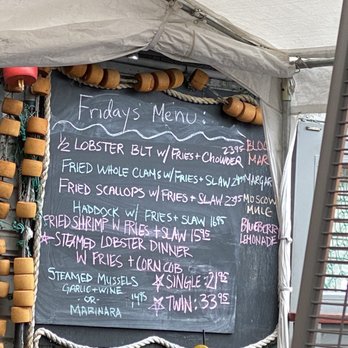 Fridays Menu:
½ LOBSTER BLT W/ FRIES + CHOWDER 23.95
FRIED WHOLE CLAMS W/ FRIES + SLAW
FRIED SCALLOPS W/ FRIES + SLAW 23.95
HADDOCK W/ FRIES + SLAW 16.95
FRIED SHRIMP W/ FRIES + SLAW 15.95
☆ STEAMED LOBSTER DINNER
W/ FRIES + CORN COB
STEAMED MUSSELS
GARLIC + WINE
- OR -
MARINARA
14.95
☆ SINGLE: 21.95
☆ TWIN: 33.95
BLOO
MAR
MARGAR
MOSCOW
MULE
BLUEBERRY
LEMONADE